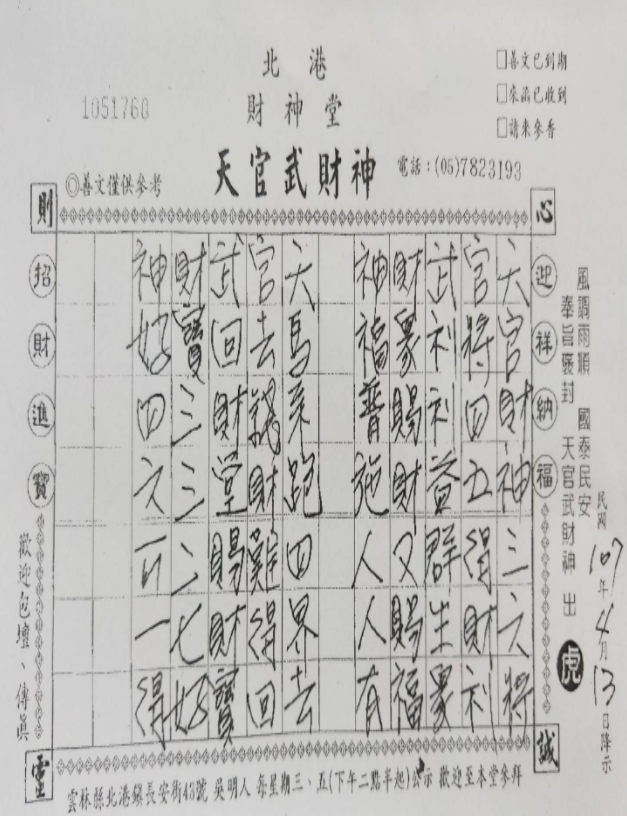 北港
財神堂
天官武財神
1051760
◎善文僅供參考
電話：(05)7823193
□善文已到期
□來函已收到
□請來參香
心
誠
則
靈
迎祥納福
招財進寶
風調雨順 國泰民安
奉旨褒封 天官武財神 出
虎
民國107年4月13日降示
六官財神三六將
官將四五得財利
武利利益群生眾
財眾賜財又賜福
神福普施人人有
六馬來跑四界去
官去錢財難得回
武回財堂賜財寶
財寶三三二七好
神好四六百一得
歡迎包壇、傳眞
雲林縣北港鎮長安街43號 吳明人 每星期三、五(下午二點半起)公示 歡迎至本堂參拜